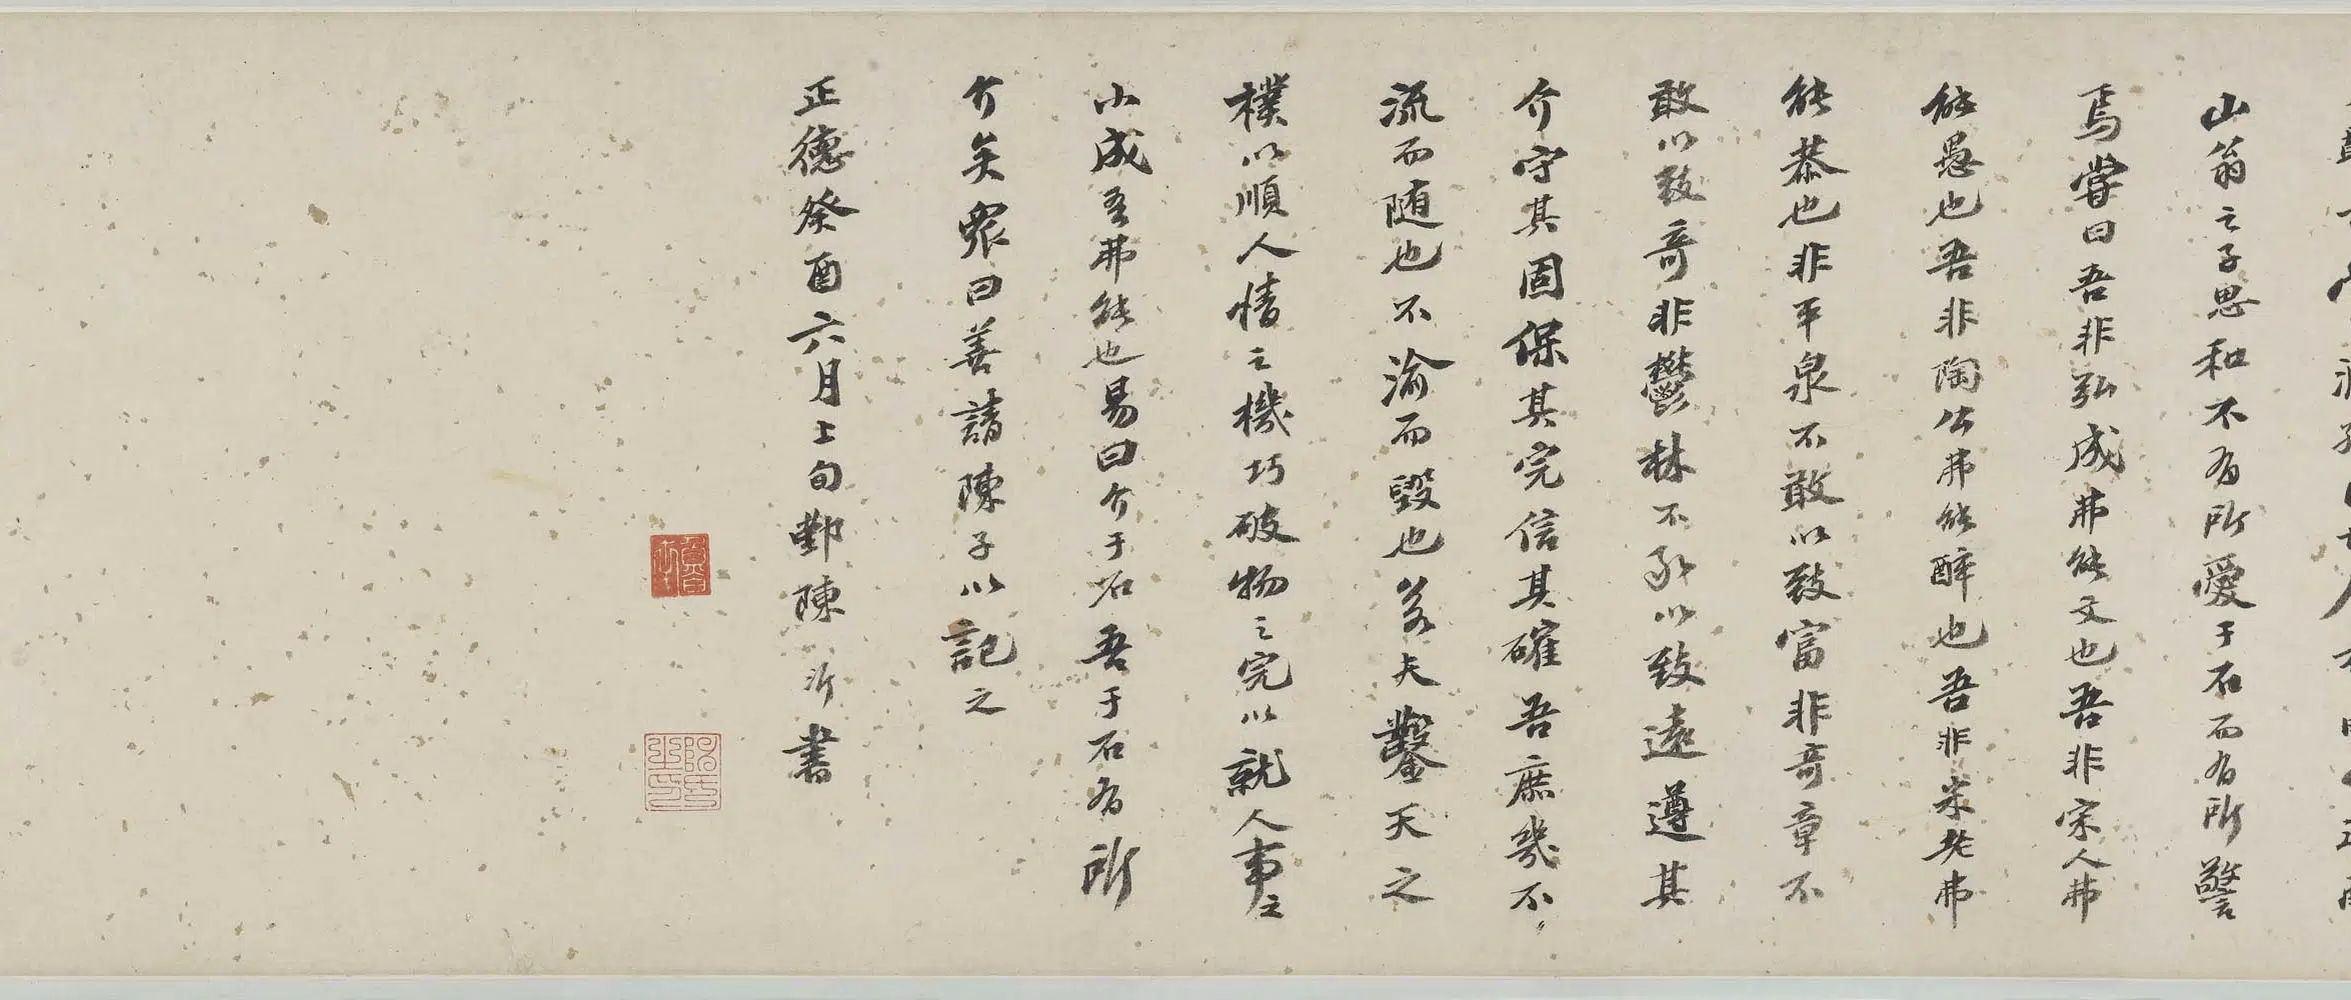 山翁之子思和不有所愛于石而有所警
焉嘗曰吾非弘成弗能文也吾非宋人弗
能愚也吾非陶公弗能醉也吾非米老弗
能恭也非平泉不敢以致富非奇章不
敢以致奇非鬱林不敢以致遠遵其
介守其固保其完信其確吾庶幾不
流而随也不渝而毀也若夫鑿天之
樸以順人情之機巧破物之完以就人事之
小成吾弗能也易曰介于石吾于石有所
介矣衆曰善請陳子以記之
正德癸酉六月上旬鄞陳沂書